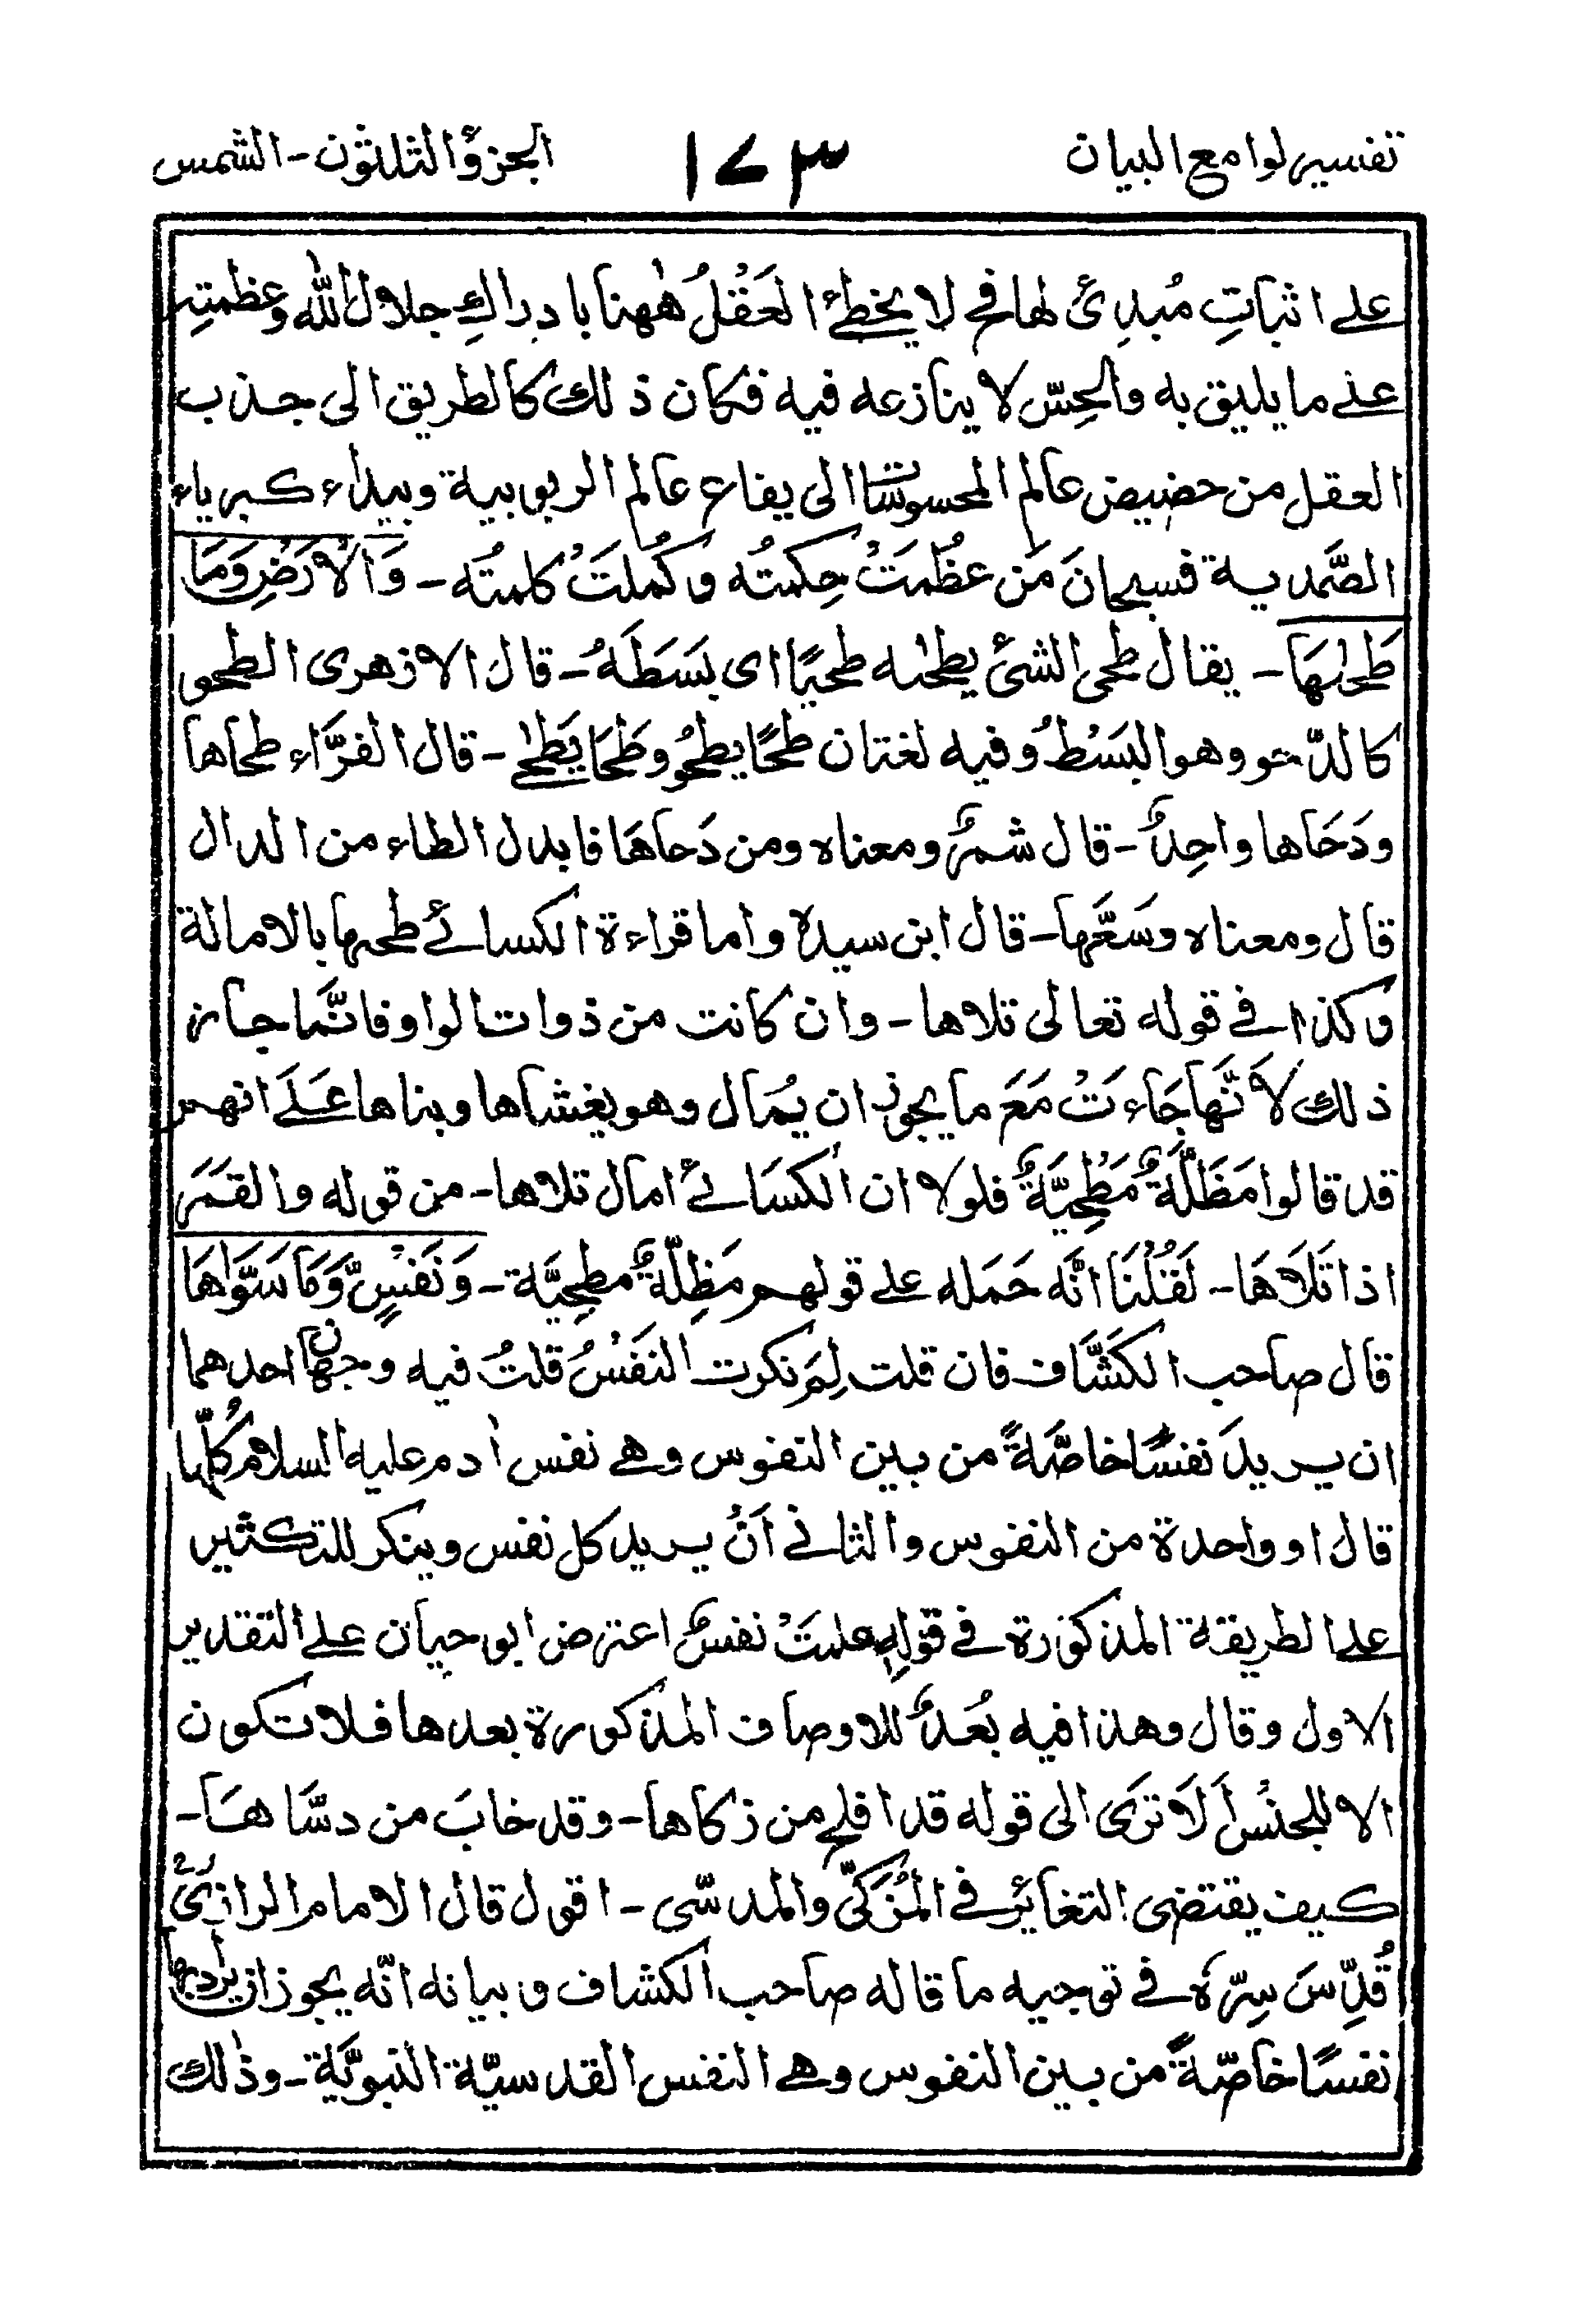 تفسير لوامع البيان ١٧٣ الجزؤ الثلثون - الشمس
على اثباتِ مُبدِئ لها فح لا يخطئ العَقْلُ ههنا بادراكِ جلال الله وعظمتِه
على ما يليق به والحِسّ لا ينازعه فيه فكان ذلك كالطريق الى جذب
العقل من حضيض عالم المحسوسات الى يفاع عالم الربوبية وبيداء كبرياء
الصَّمدية فسبحانَ مَن عظُمَتْ حِكمتُه وكَمُلَتْ كلمتُه - وَالْاَرْضِ وَمَا
طَحٰىهَا - يقال طحى الشئ يطحٰه طحيًا اى بَسَطَهُ - قال الازهرى الطحو
كالدّحو وهو البَسْطُ وفيه لغتان طحًا يطحُو وطَحَا يَطحٰى - قال الفرَّاء طحاها
ودَحَاها واحِدٌ - قال شمرٌ ومعناه ومن دَحاهَا فابدل الطاء من الدال
قال ومعناه وسَعَّها - قال ابن سيده واما قراءة الكسائے طحها بالامالة
وكذا فى قوله تعالى تلاها - وان كانت من ذوات الواو فانَّما جاز
ذلك لاَنَّها جَاءَتْ مَعَ ما يجوز ان يُمَال وهو يغشاها وبناها عَلَى انهم
قد قالوا مَظَلَّةٌ مَطْحِيَّةٌ فلولا ان الكسَائے امال تلاها - من قوله والقَمَرَ
اذا تَلَاهَا - لَقُلْنَا انَّه حَمَله على قولهم مَظِلّةٌ مطحِيَّة - وَنَفْسٍ وَّمَا سَوَّاهَا
قال صاحب الكَشَّاف فان قلت لِمَ نكرت النَفْسُ قلتُ فيه وجهان احدهما
ان يريدَ نفسًا خاصَّةً من بين النفوس وهى نفس اٰدم عليه السلام كلّها
قال او واحدة من النفوس والثانى اَنْ يريد كل نفس وينكر للتكثير
على الطريقة المذكورة فى قولِه علمتْ نفسٌ اعترض ابو حيان على التقدير
الاول وقال وهذا فيه بُعْدٌ للاوصاف المذكورة بعدها فلا تكون
الا للجنْسِ اَلَا تَرَى الى قوله قد افلح من زكاها - وقد خابَ من دسَّاهَا -
كيف يقتضى التغايُر فى المُزكّٰى والمدسّى - اقول قال الامام الرازىؒ
قُدِّسَ سِرّهٗ فى توجيه ما قاله صاحب الكشاف وبيانه انّه يجوز ان يراد بها
نفسًا خاصّةً من بين النفوس وهى النفس القدسيّة النبويّة - وذٰلك